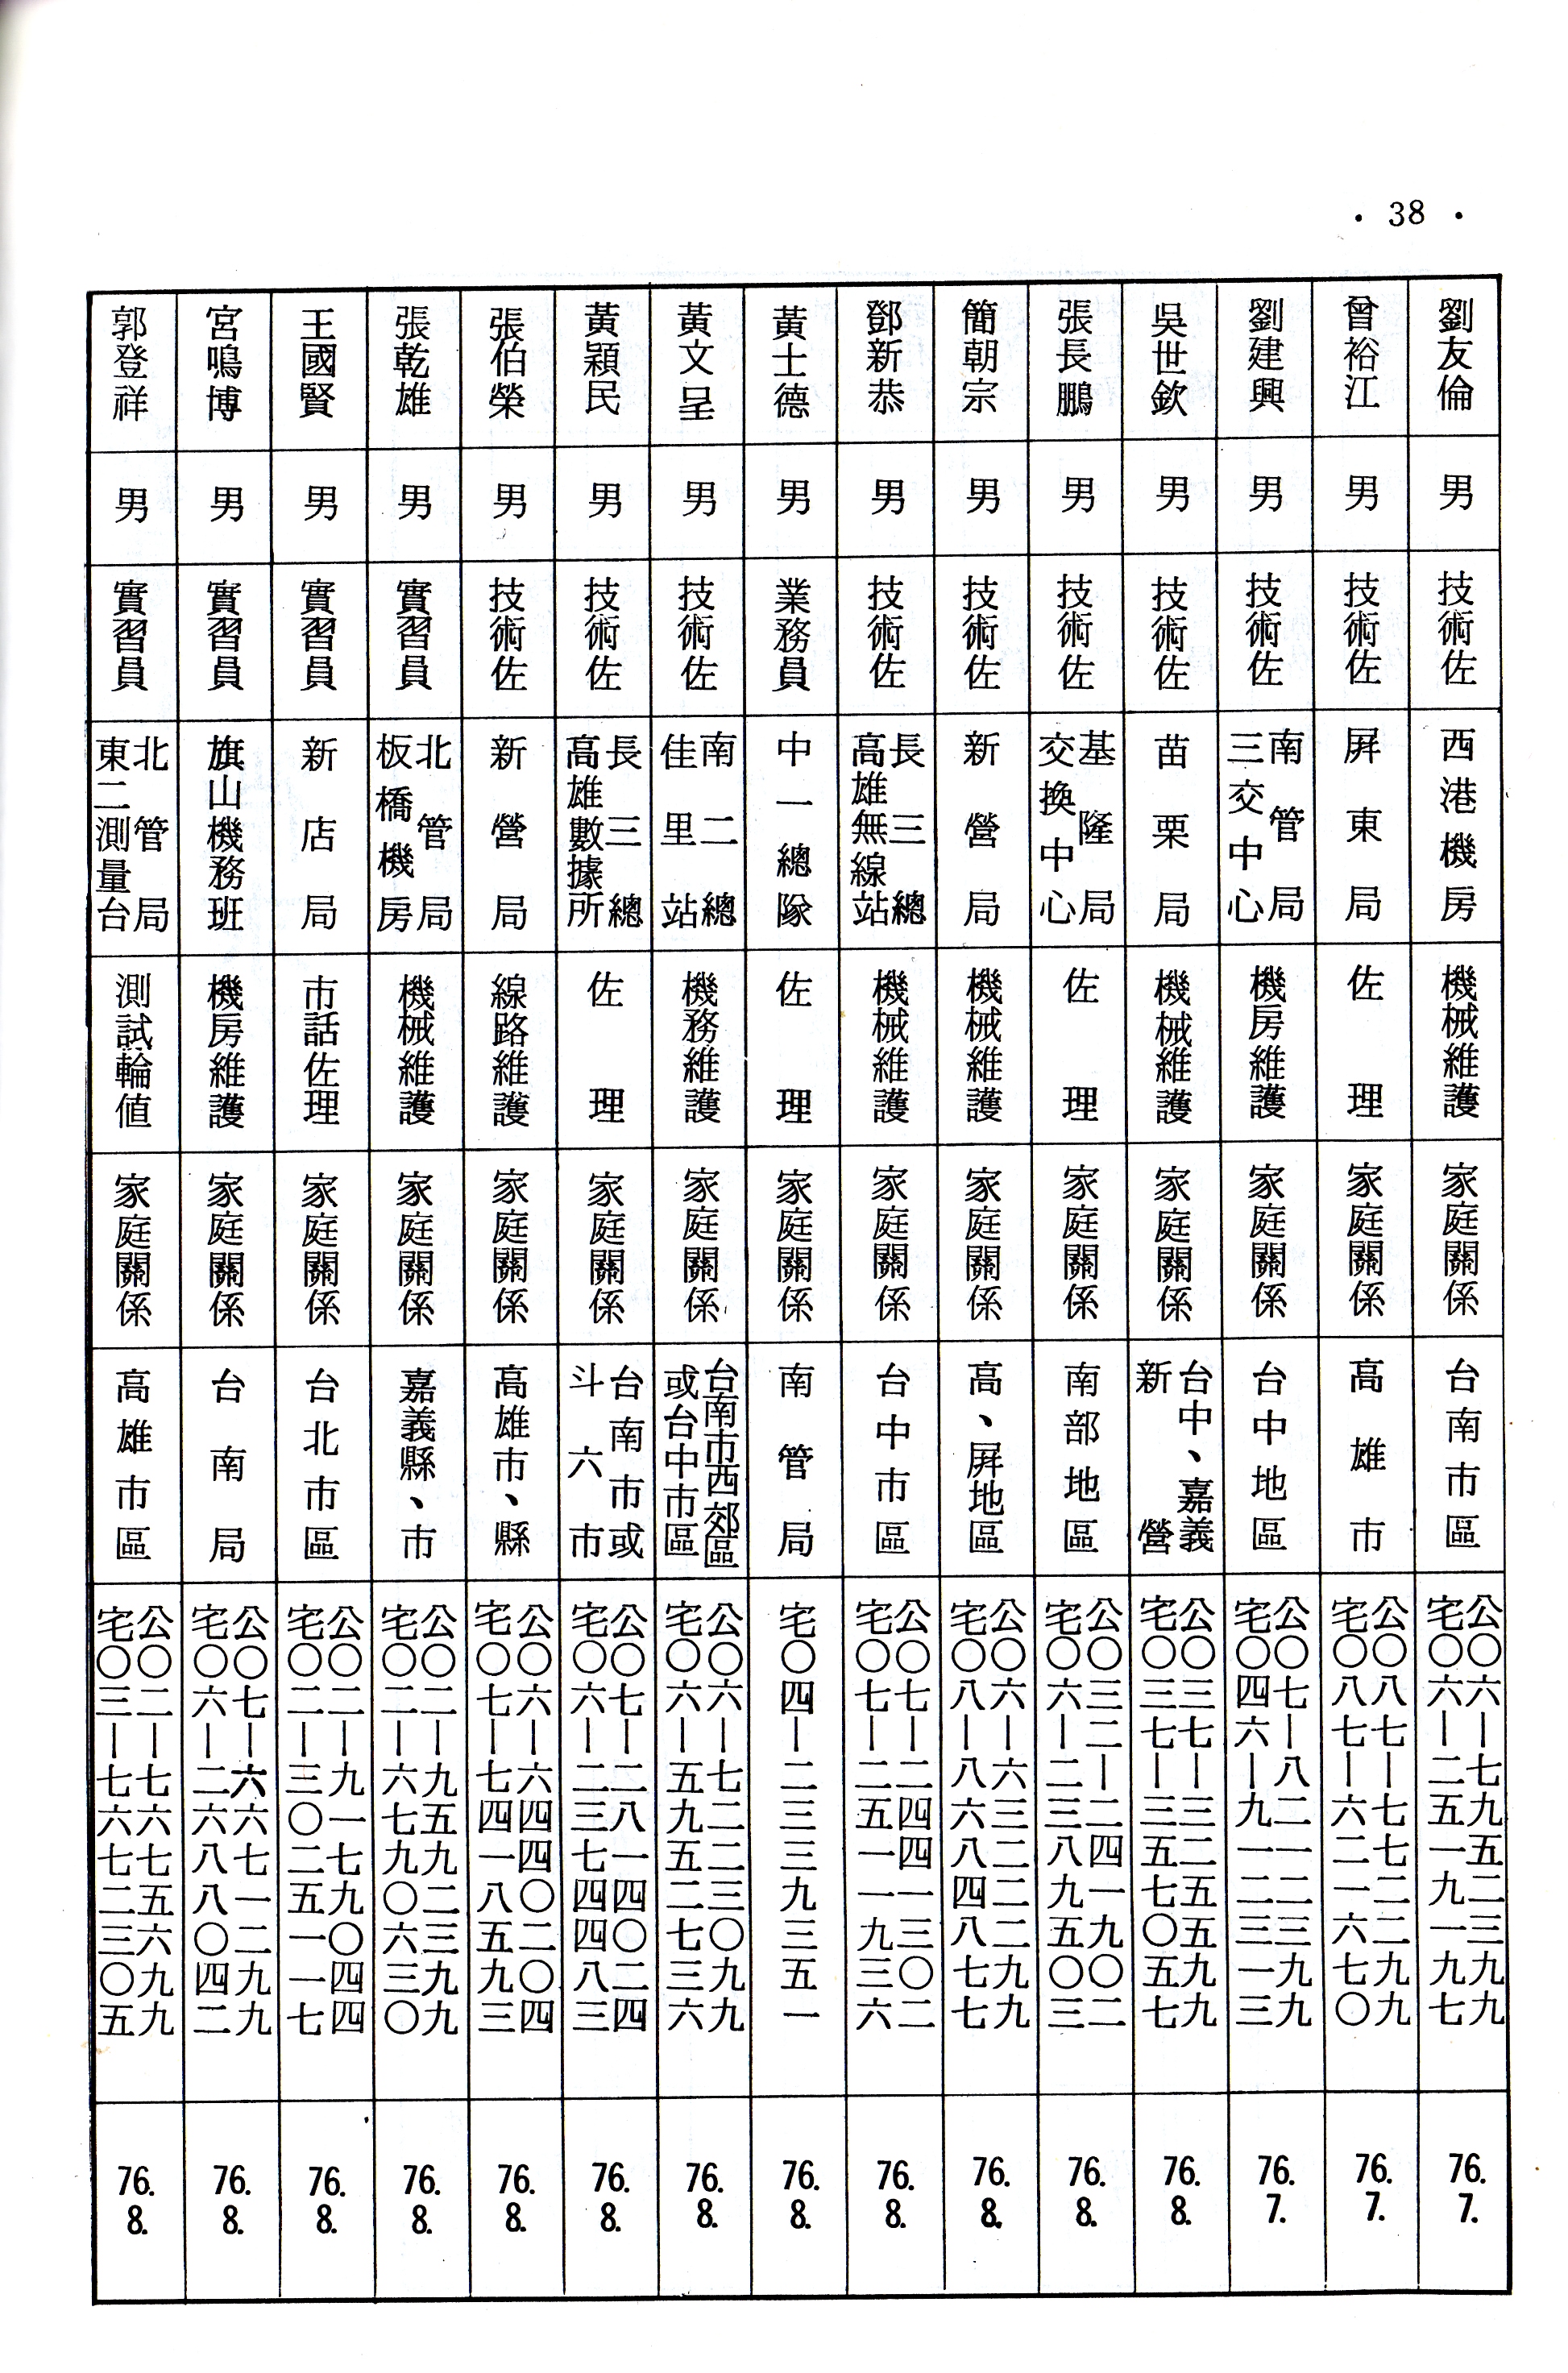 • 38 •
劉友倫
男
技術佐
西港機房
機械維護
家庭關係
台南市區
公〇六—七九五二三九九
宅〇六—二五一九一九七
76.7.
曾裕江
男
技術佐
屏東局
佐理
家庭關係
高雄市
公〇八七—七七二二九九
宅〇八七—六二一六七〇
76.7.
劉建興
男
技術佐
南管局
三交中心
機房維護
家庭關係
台中地區
公〇七—八二一二三九九
宅〇四六—九一二三一三
76.7.
吳世欽
男
技術佐
苗栗局
機械維護
家庭關係
台中、嘉義
新營
公〇三七—三二五五九九
宅〇三七—三五七〇五七
76.8.
張長鵬
男
技術佐
基隆局
交換中心
佐理
家庭關係
南部地區
公〇三二—二四一九〇二
宅〇六—二三八九五〇三
76.8.
簡朝宗
男
技術佐
新營局
機械維護
家庭關係
高、屏地區
公〇六—六三二二二九九
宅〇八—八六八四八七七
76.8.
鄧新恭
男
技術佐
長三總
高雄無線站
機械維護
家庭關係
台中市區
公〇七—二四四一三〇二
宅〇七—二五一一九三六
76.8.
黃士德
男
業務員
中一總隊
佐理
家庭關係
南管局
宅〇四—二三三九三五一
76.8.
黃文呈
男
技術佐
南二總
佳里站
機務維護
家庭關係
台南市西郊區
或台中市區
公〇六—七二二三〇九九
宅〇六—五九五二七三六
76.8.
黃穎民
男
技術佐
長三總
高雄數據所
佐理
家庭關係
台南市或
斗六市
公〇七—二八一四〇二四
宅〇六—二三七四四八三
76.8.
張伯榮
男
技術佐
新營局
線路維護
家庭關係
高雄市、縣
公〇六—六四四〇二〇四
宅〇七—七四一八五九三
76.8.
張乾雄
男
實習員
北管局
板橋機房
機械維護
家庭關係
嘉義縣、市
公〇二—九五九二三九九
宅〇二—六七九〇六三〇
76.8.
王國賢
男
實習員
新店局
市話佐理
家庭關係
台北市區
公〇二—九一七九〇四四
宅〇二—三〇二五一一七
76.8.
宮鳴博
男
實習員
旗山機務班
機房維護
家庭關係
台南局
公〇七—六六七一二九九
宅〇六—二六八八〇四二
76.8.
郭登祥
男
實習員
北管局
東二測量台
測試輪值
家庭關係
高雄市區
公〇二—七六七五六九九
宅〇三—七六七二三〇五
76.8.